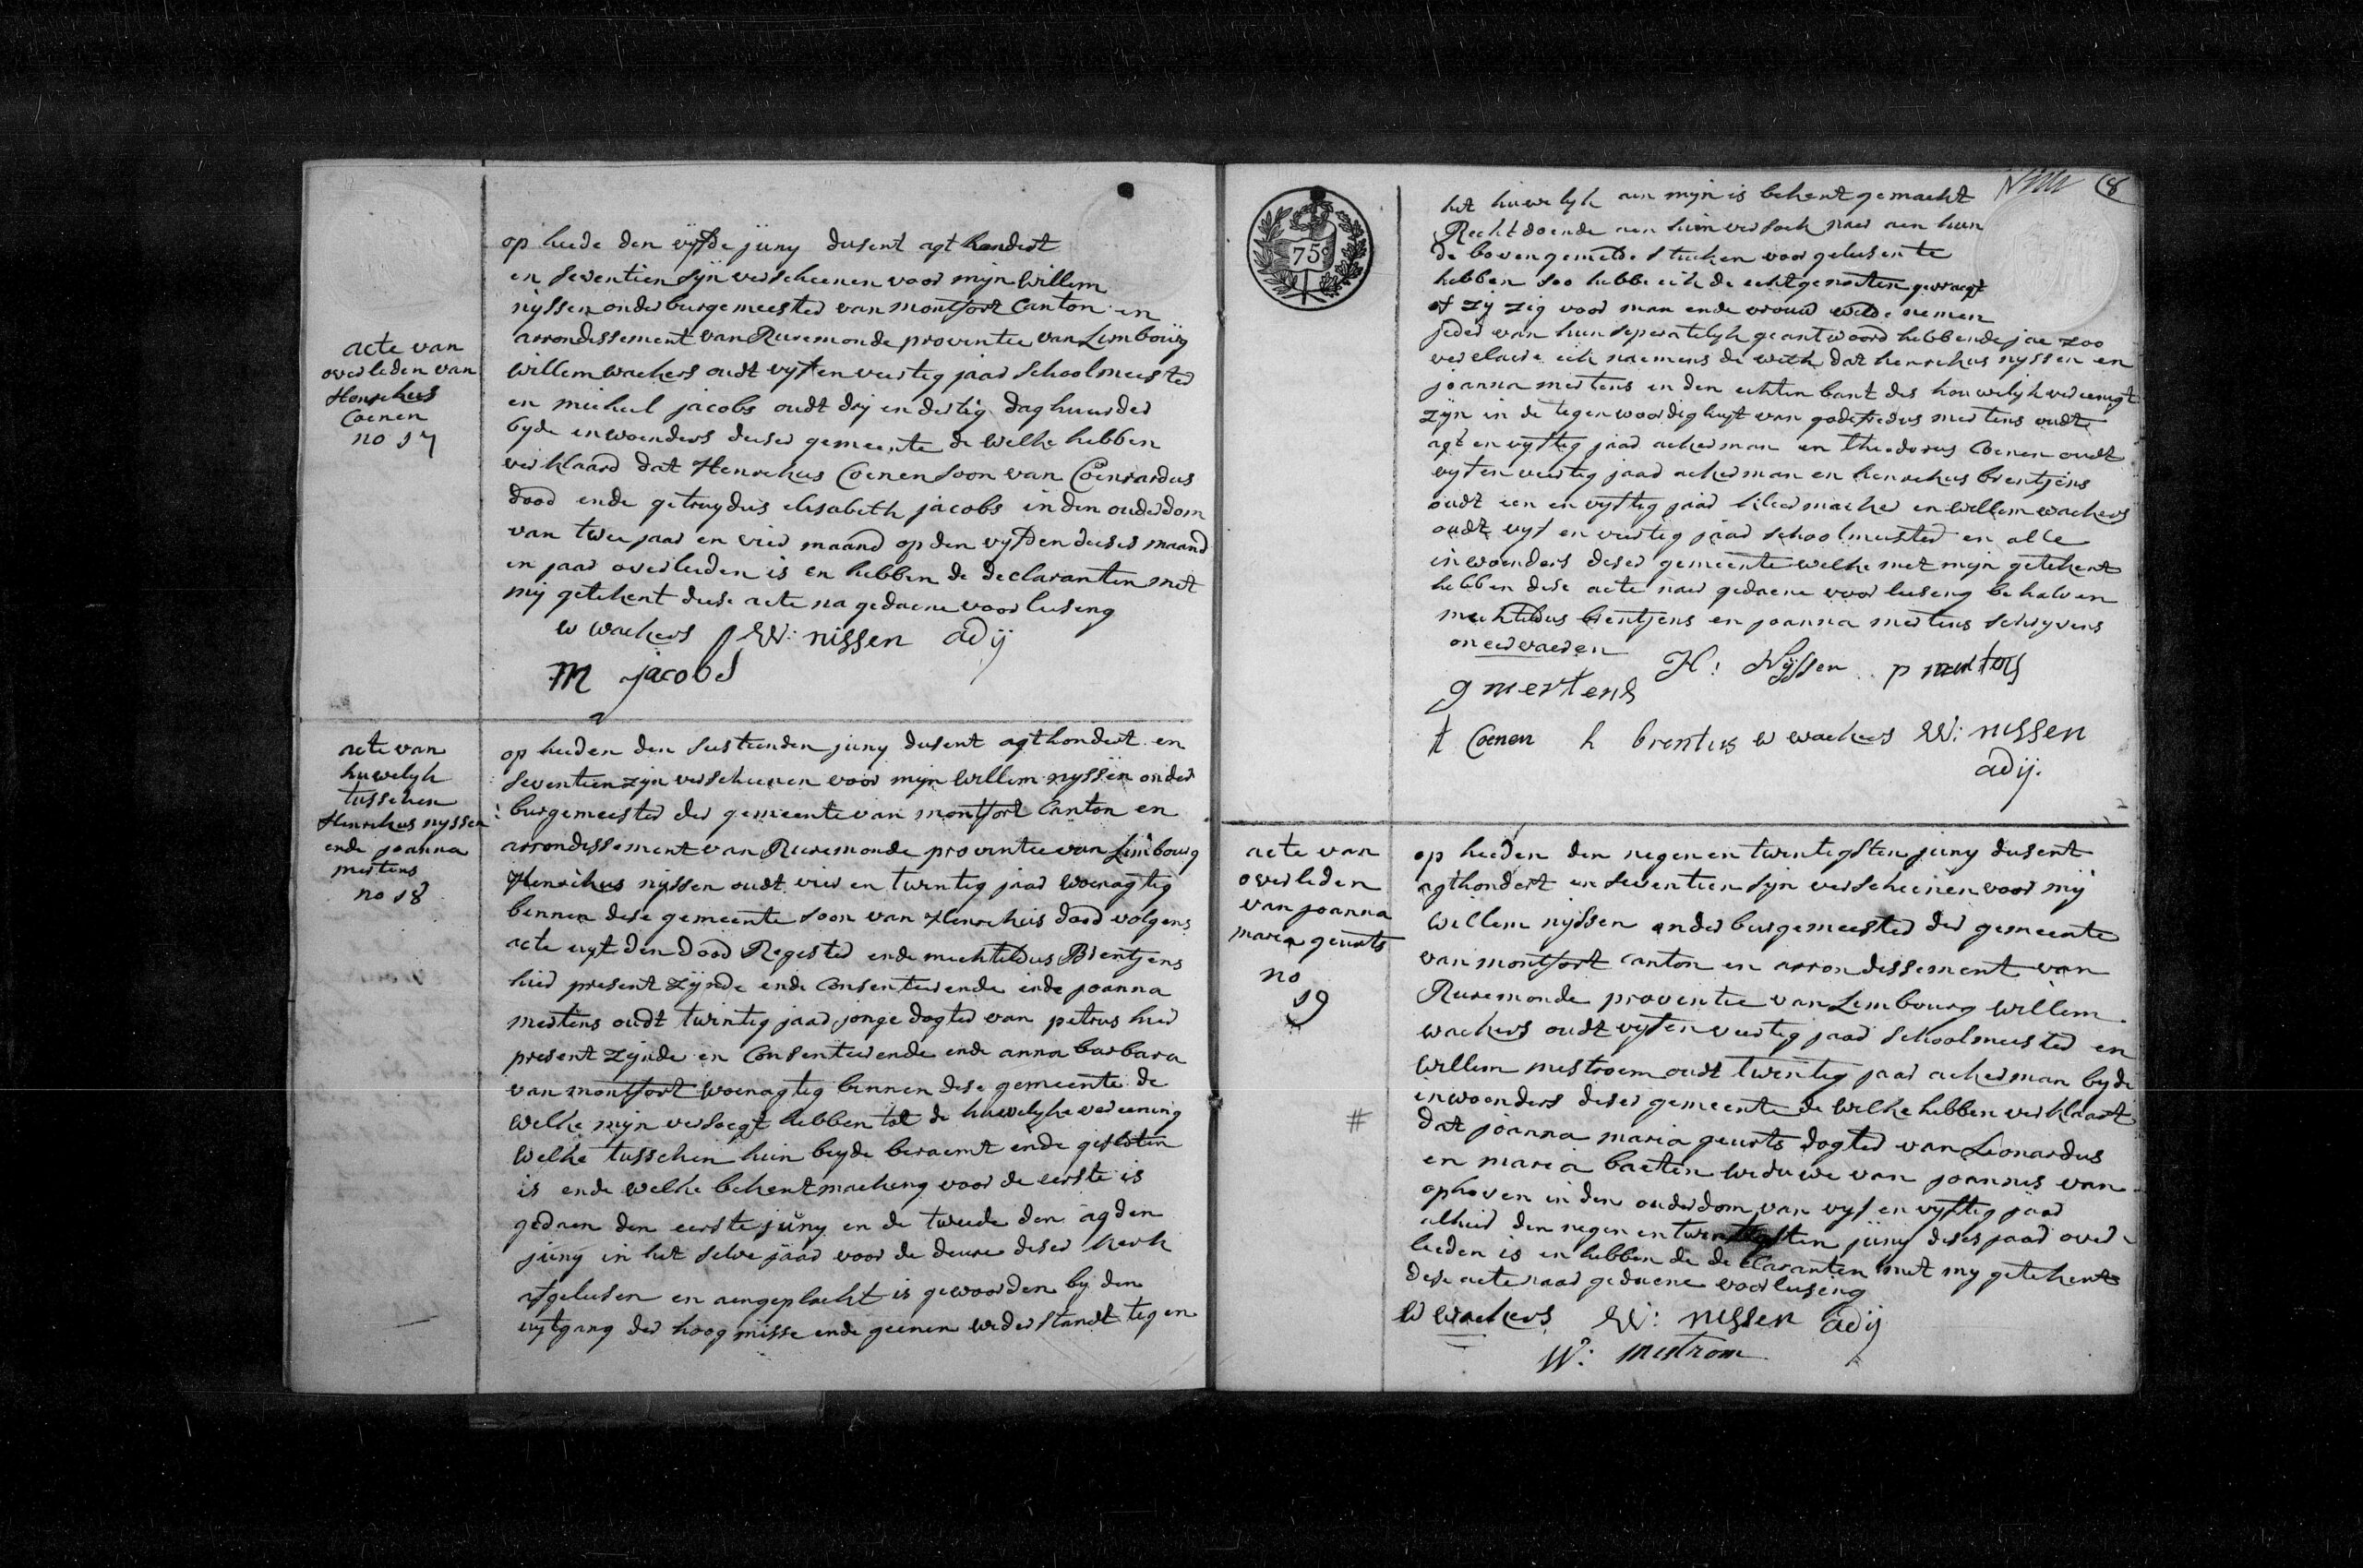 acte van
overleden van
Henrekus
Coenen
no 17
op heede den vyfde juny dusent agt hondert
en seventien syn verscheenen voor mijn Willem
nyssen onderburgemeester van montfort Canton en
arrondissement van Ruremonde provintie van Limbourg
Willem wackers oudt vyf en veertig jaar schoolmeester
en micheel jacobs oudt dry en dertig daghuurder
byde inwoenders deeser gemeente de welke hebben
verklaard dat Henrekus Coenen soon van Coenrardus
dood ende getruydus elisabeth jacobs in den ouderdom
van twee jaar en vier maand op den vyfden deeses maand
en jaar overleeden is en hebben de declaranten met
mij getekent deese acte na gedaene voorleeseng
w wackers W: nissen adij
M jacobs
acte van
huwelyk
tusschen
Henrekus nyssen
ende joanna
mertens
no 18
op heeden den sesteenden juny dusent agthondert en
seventien zyn verscheenen voor mijn Willem nyssen onder
burgemeester der gemeente van montfort Canton en
arrondissement van Ruremonde provintie van Limbourg
Henrikus nyssen oudt vier en twintig jaar woenagtig
bennen dese gemeente soon van Henrekus dood volgens
acte uyt den dood Regester ende mechteldus Brentjens
hier present zynde ende Consenteerende ende joanna
mertens oudt twintig jaar jonge dogter van petrus hier
present zynde en Consenteerende ende anna barbara
van montfort woenagtig bennen dese gemeente de
welke mijn versoegt hebben tot de huwelyke vereening
welke tusschen hun beyde beraemt ende gesloten
is ende welke bekentmackeng voor de eerste is
gedaen den eerste juny en de tweede den agden
juny in het selve jaar voor de deure deser kerk
afgeleesen en aengeplackt is gewoorden by den
uytgang der hoog misse ende geenen wederstandt tegen
8
het huwelyk aen mijn is bekent gemaekt
Recht doende aen hun versoek naer aen hun
de bovengemelde stucken voor gelesen te
hebben soo hebbe eik de echtgenoten gevraegt
of zy zig voor man ende vrouw wilde nemen
jeder van hun seperatelyk geantwoord hebbende jae zoo
verclaere eik naemens de weth dat henrekus nyssen en
joanna mertens in den echten bant des houwelyk vereenigt
zyn in de tegenwoordigheyt van godefredus mertens oudt
agt en vyftig jaar ackerman en theodorus Coenen oudt
vyf en veertig jaar ackerman en henrekus brentjens
oudt een en vyftig jaar kleermacker en Willem wackers
oudt vyf en veertig jaar schoolmeester en alle
inwoenders deser gemeente welke met mijn getekent
hebben dese acte naer gedaene voor leeseng behalven
mechteldus brentjens en joanna mertens schryvens
oneervaeren
H: Nyssen p mertens
g mertens
t Coenen h brentius w wackers W: nissen
adij.
75
acte van
overleden
van joanna
maria geurts
no
19
#
op heeden den negenentwintigsten juny dusent
agthondert en seventien syn verscheenen voor mij
Willem nyssen onderburgemeester der gemeente
van montfort Canton en arrondissement van
Ruremonde provintie van Limbourg Willem
wackers oudt vyf en veertig jaar schoolmeester en
Willem mestroem oudt twintig jaar ackerman byde
inwoenders deser gemeente de welke hebben verklaart
dat joanna maria geurts dogter van Leonardus
en maria baeten weduwe van joannes van
ophoven in den ouderdom van vyf en vyftig jaar
alhier den negenentwentigsten juny deses jaar over
leeden is en hebben de declaranten met my getekent
dese acte naar gedaene voorleeseng
W wackers W: nissen adij
W: mestrom